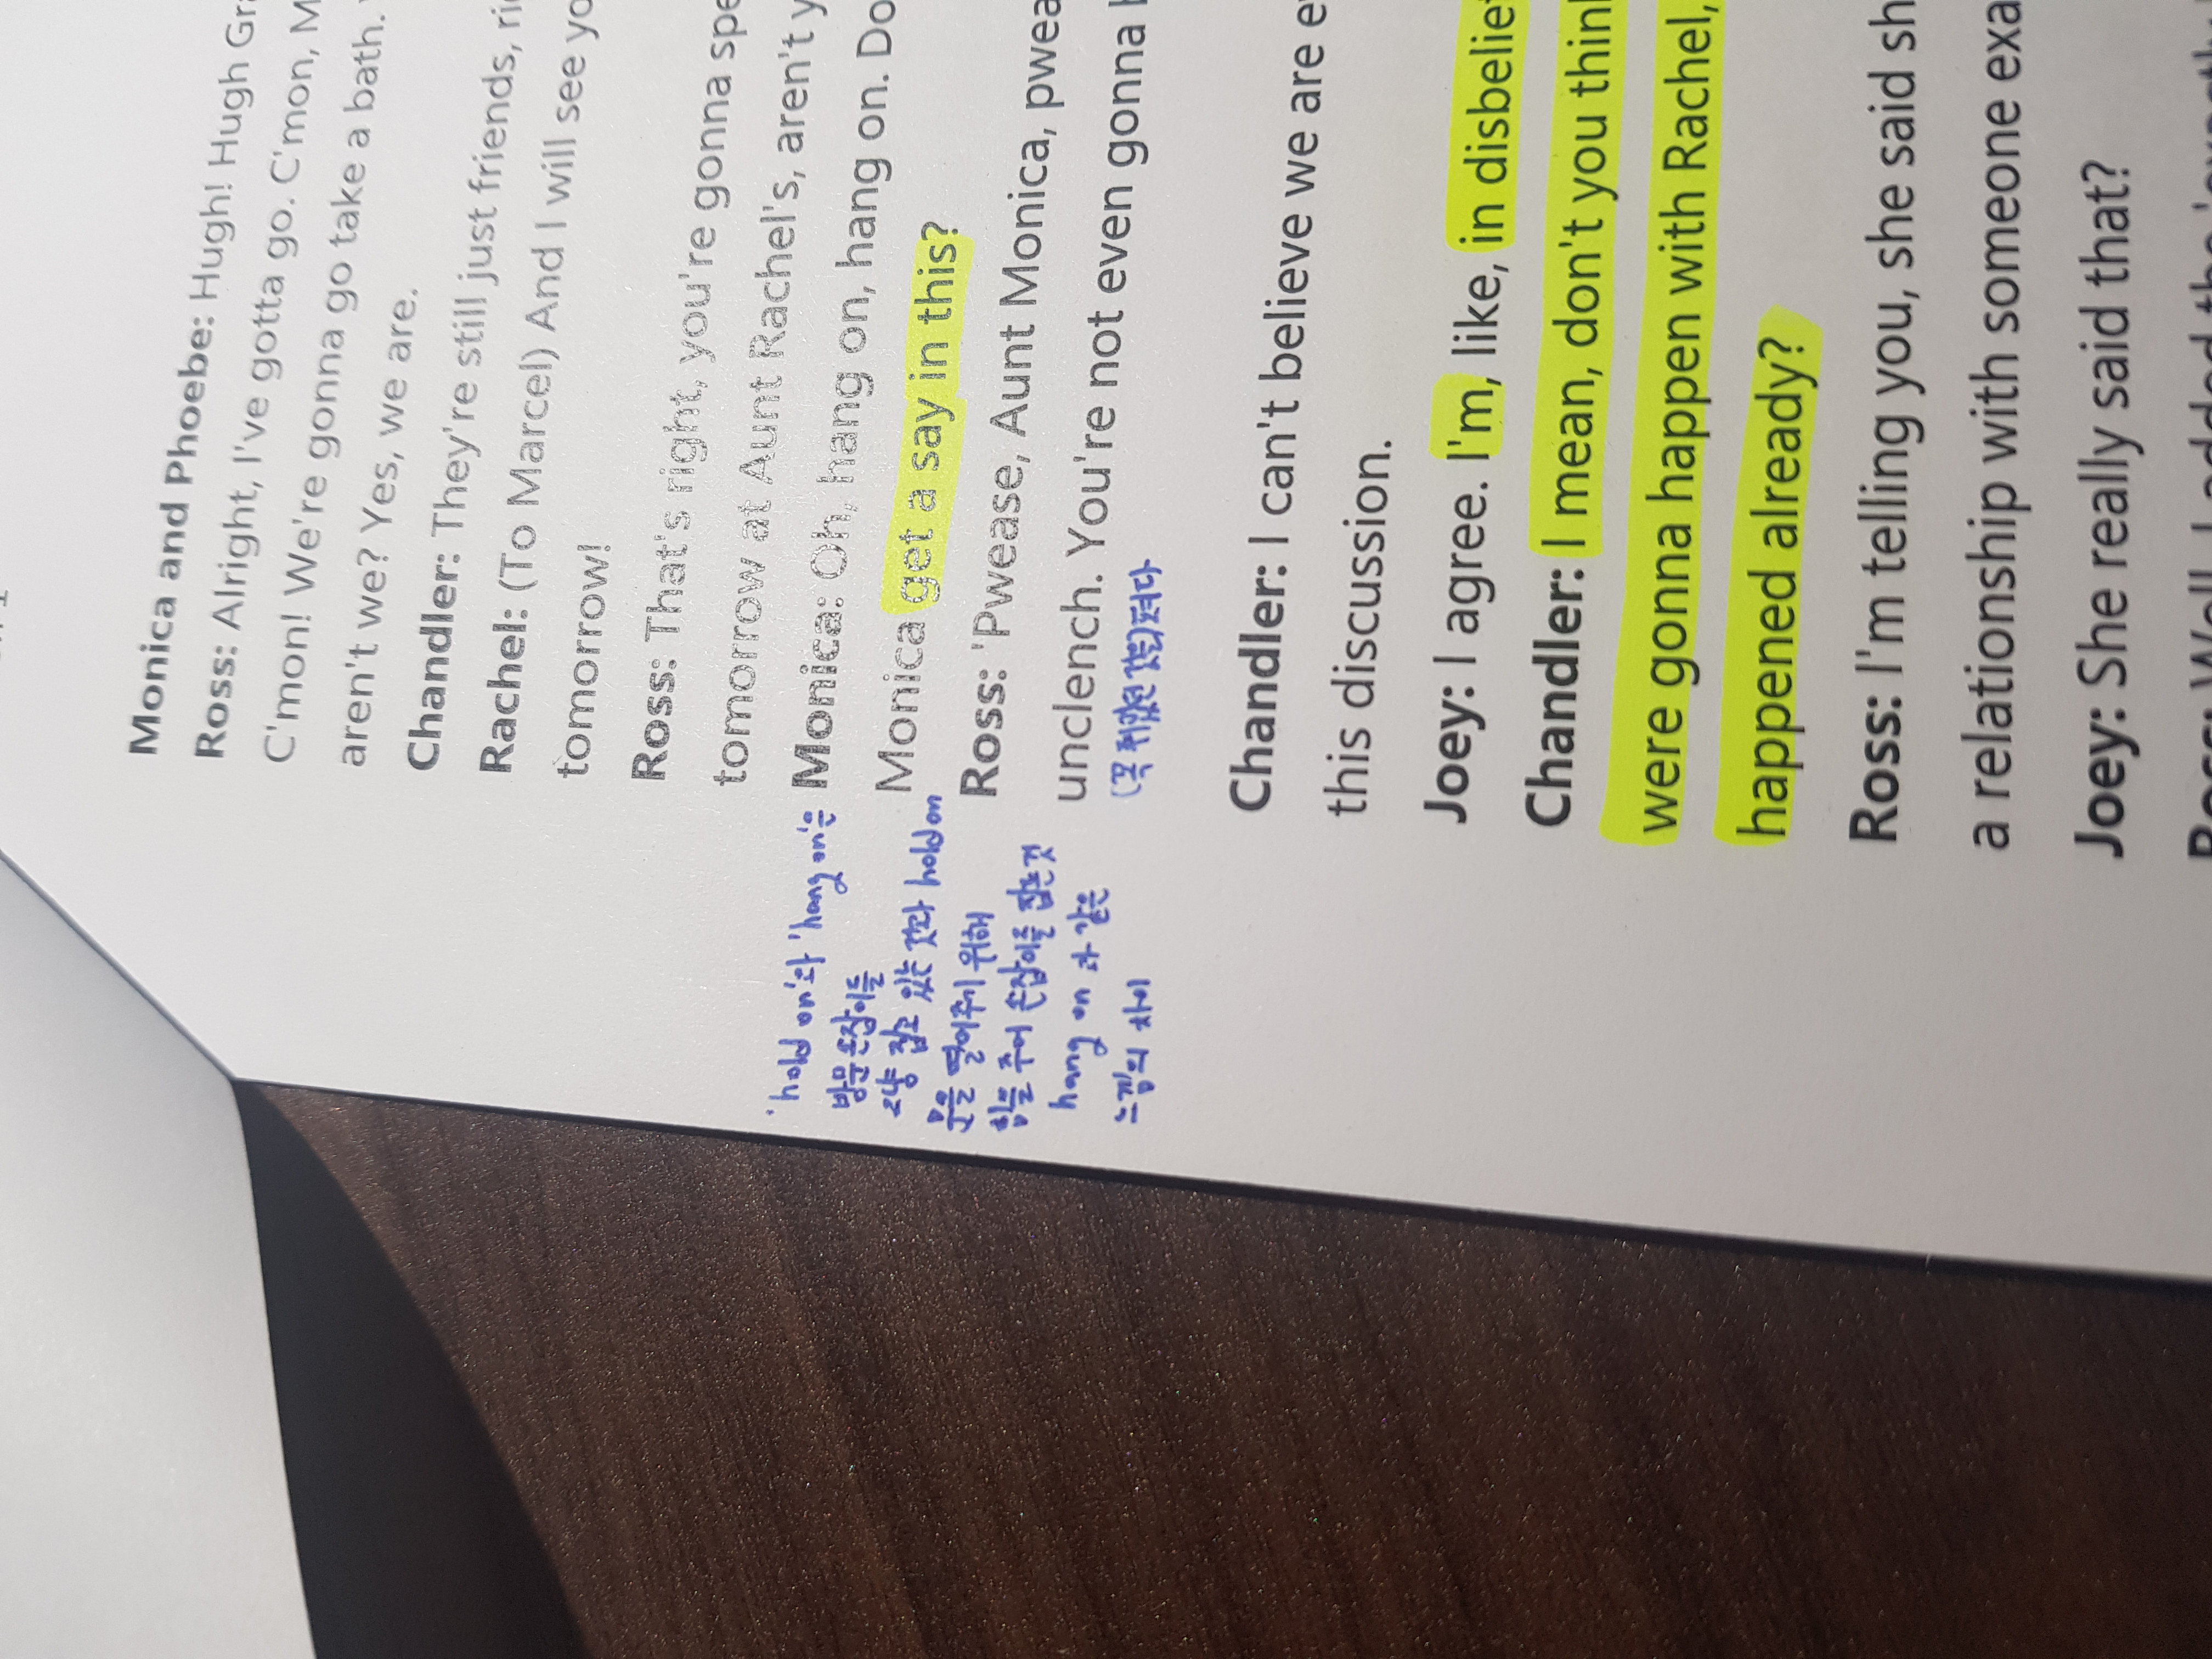 Monica and Phoebe: Hugh! Hugh
Ross: Alright, I've gotta go. C'mon, M
C'mon! We're gonna go take a bath.
aren't we? Yes, we are.
Chandler: They're still just friends,
Rachel: (To Marcel) And I will see
tomorrow!
Ross: That's right, you're gonna
tomorrow at Aunt Rachel's, aren't
Monica: Oh, hang on, hang on. Do
Monica get a say in this?
Ross: 'Pwease, Aunt Monica,
unclench. You're not even gonna
(꽉 쥐었던 것을)펴다
'hold on'와 'hang on'은
방문 손잡이를
그냥 잡고 있는 것과 hold on
문을 열어주기 위해
힘을 주어 손잡이를 잡은 것
hang on 과 같은
느낌의 차이
Chandler: I can't believe we are
this discussion.
Joey: I agree. I'm, like, in disbelief
Chandler: I mean, don't you think
were gonna happen with Rachel,
happened already?
Ross: I'm telling you, she said
a relationship with someone
Joey: She really said that?